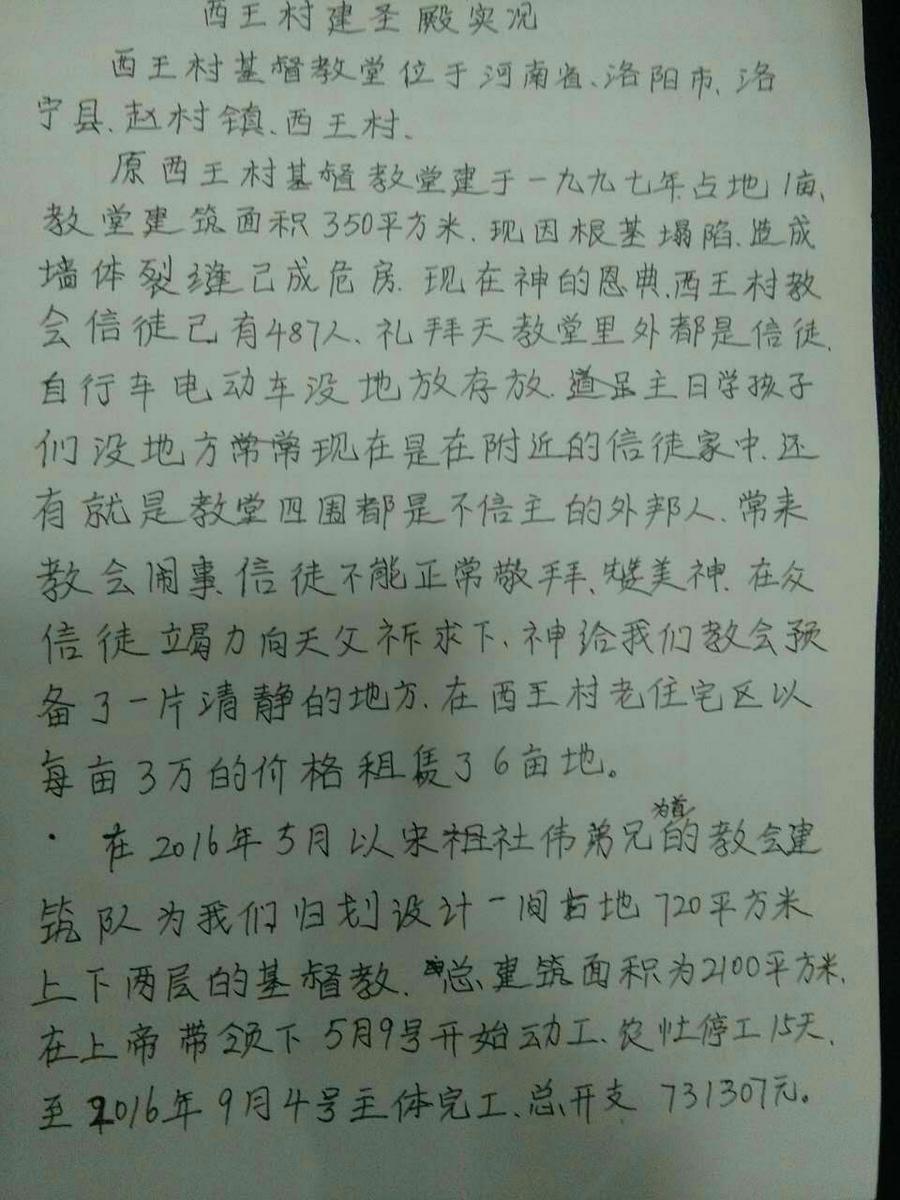 西王村建圣殿实况
西王村基督教堂位于河南省、洛阳市、洛
宁县、赵村镇、西王村、
原西王村基督教堂建于一九九七年占地1亩、
教堂建筑面积350平方米、现因根基塌陷、造成
墙体裂缝已成危房、现在神的恩典、西王村教
会信徒已有487人、礼拜天教堂里外都是信徒、
自行车电动车没地放存放、主日学孩子
们没地方常常现在是在附近的信徒家中、还
有就是教堂四围都是不信主的外邦人、常来
教会闹事、信徒不能正常敬拜、赞美神、在众
信徒竭力向天父祈求下、神给我们教会预
备了一片清静的地方、在西王村老住宅区以
每亩3万的价格租赁了6亩地。
在2016年5月以宋祖社伟弟兄为首的教会建
筑队为我们归划设计一间占地720平方米
上下两层的基督教、总建筑面积为2100平方米、
在上帝带领下5月9号开始动工、农忙停工15天、
至2016年9月4号主体完工、总开支731307元。